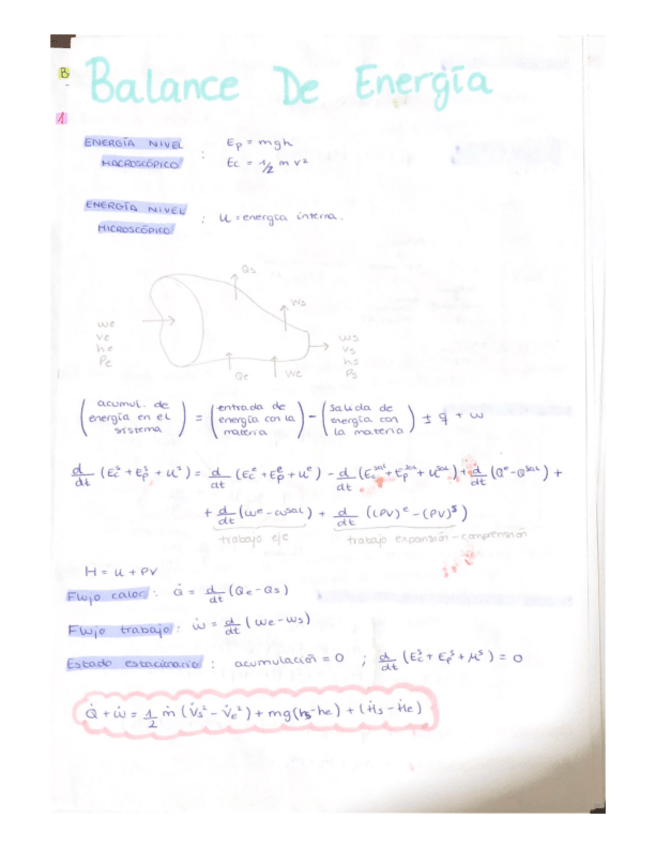 B
Balance De Energía
1
ENERGÍA NIVEL MACROSCÓPICO : Ep = mgh
Ec = 1/2 m v²
ENERGÍA NIVEL MICROSCÓPICO : U = energía interna.
Qs
Ws
we
ve
he
Pe
ws
vs
hs
Ps
Qe
We
(acumul. de energía en el sistema) = (entrada de energía con la materia) - (salida de energía con la materia) ± q + w
d/dt (Ec^s + Ep^s + U^s) = d/dt (Ec^e + Ep^e + U^e) - d/dt (Ec^sal + Ep^sal + U^sal) + d/dt (Q^e - Q^sal) +
+ d/dt (W^e - W^sal) + d/dt ((PV)^e - (PV)^s)
trabajo eje
trabajo expansión - comprensión
H = U + PV
Flujo calor : Q̇ = d/dt (Qe - Qs)
Flujo trabajo : ẇ = d/dt (we - ws)
Estado estacionario : acumulación = 0 ; d/dt (Ec^s + Ep^s + μ^s) = 0
Q̇ + ẇ = 1/2 ṁ (V̇s² - V̇e²) + mg(hs - he) + (Ḣs - Ḣe)